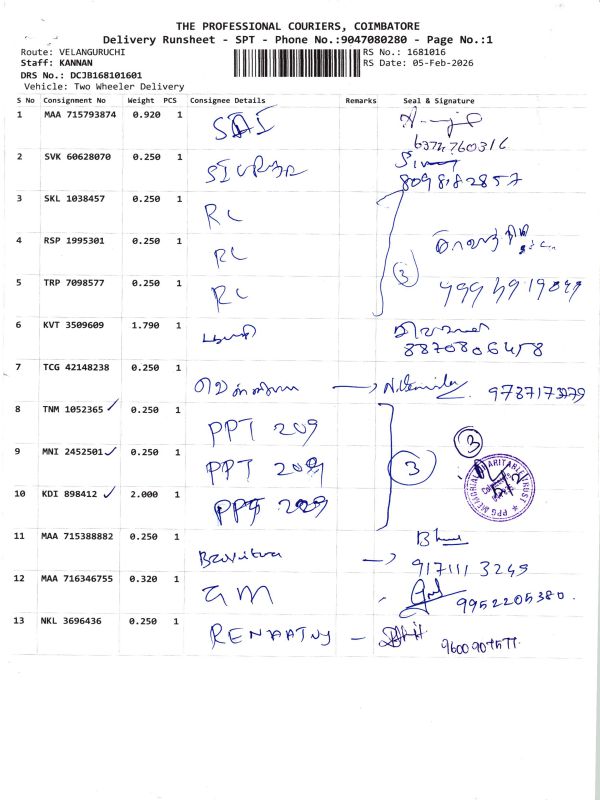 THE PROFESSIONAL COURIERS, COIMBATORE
Delivery Runsheet - SPT - Phone No.:9047080280 - Page No.:1
Route: VELANGURUCHI RS No.: 1681016
Staff: KANNAN RS Date: 05-Feb-2026
DRS No.: DCJB168101601
Vehicle: Two Wheeler Delivery
S No Consignment No Weight PCS Consignee Details Remarks Seal & Signature
1 MAA 715793874 0.920 1 SAI
6374760316
2 SVK 60628070 0.250 1
8098182857
3 SKL 1038457 0.250 1 RC
4 RSP 1995301 0.250 1 RC
3
5 TRP 7098577 0.250 1 RC
6 KVT 3509609 1.790 1
8870806458
7 TCG 42148238 0.250 1
8 TNM 1052365 ✓ 0.250 1 PPT 209
9 MNI 2452501 ✓ 0.250 1 PPT 209 3 3
10 KDI 898412 ✓ 2.000 1 PPT 209
PPG MEMORIAL CHARITABLE TRUST
11 MAA 715388882 0.250 1
9171113249
12 MAA 716346755 0.320 1 GM 9952205380.
13 NKL 3696436 0.250 1